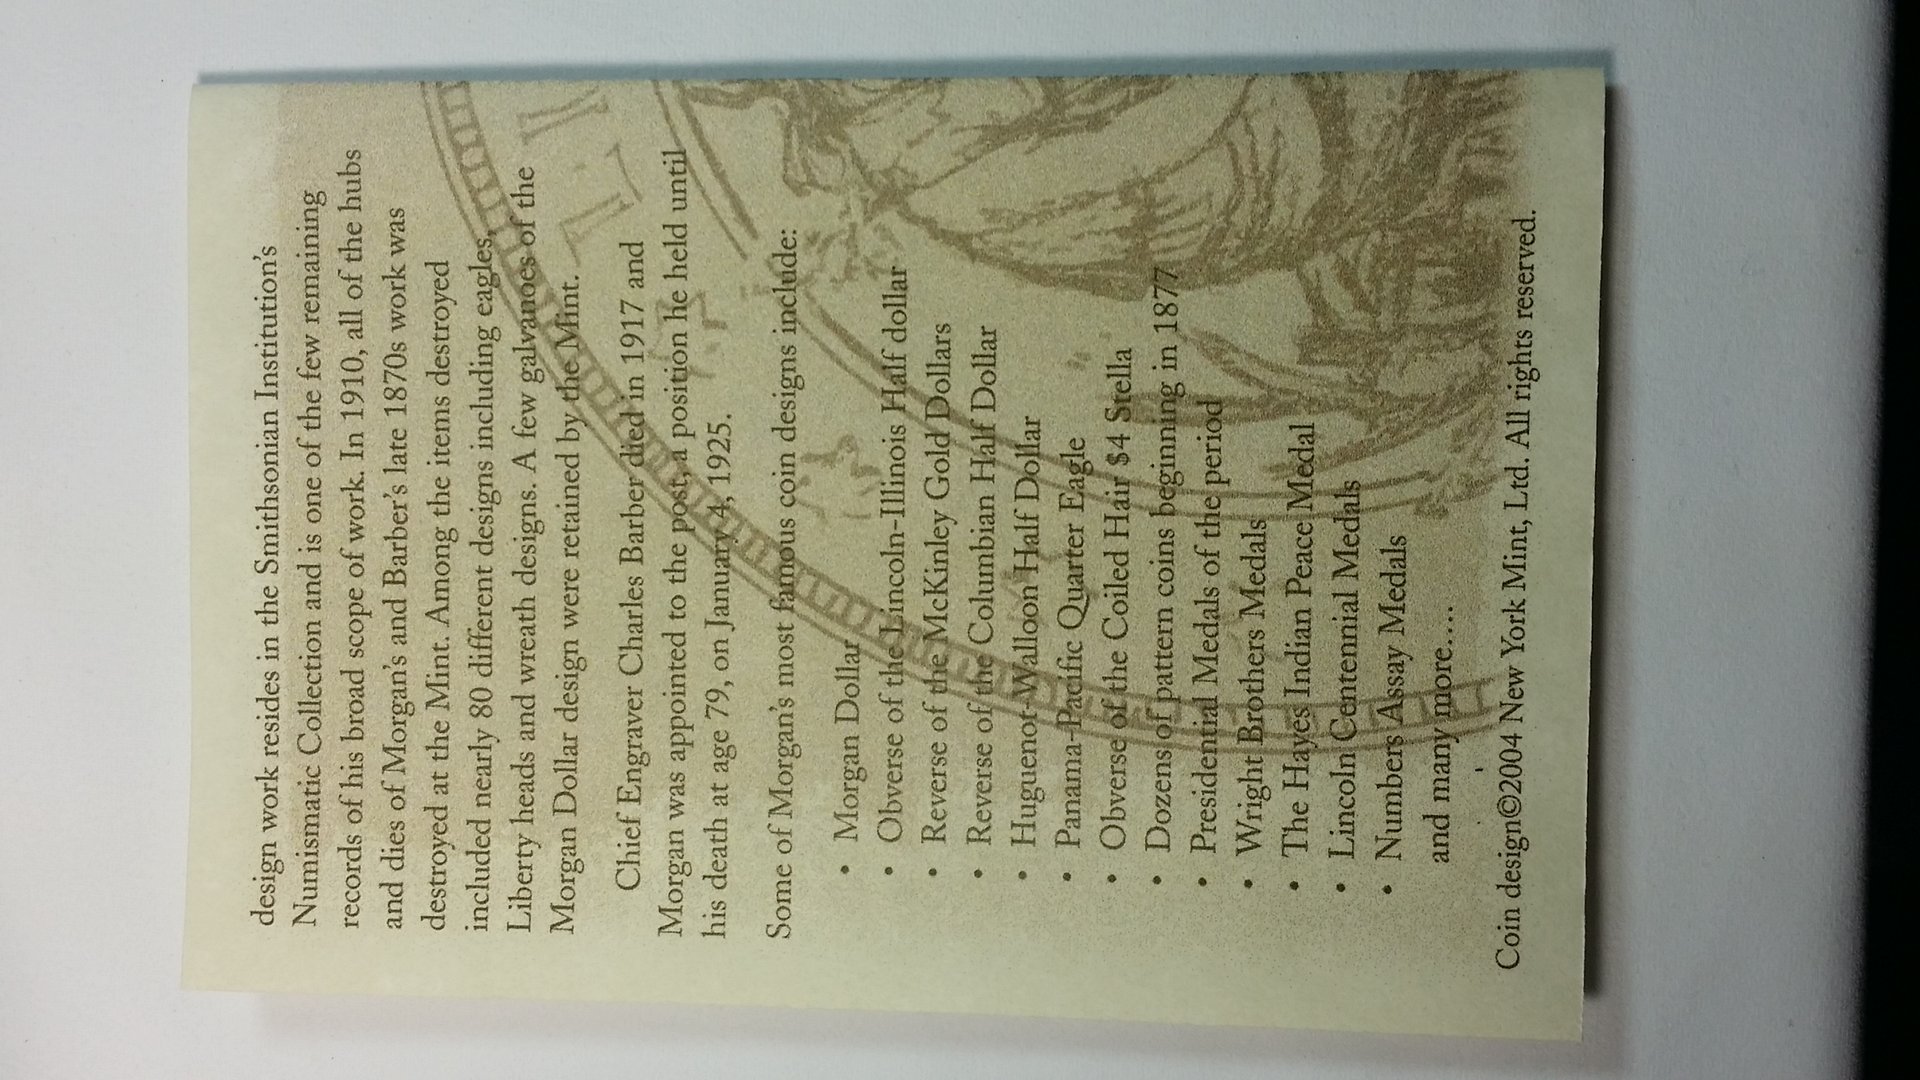 design work resides in the Smithsonian Institution's
Numismatic Collection and is one of the few remaining
records of his broad scope of work. In 1910, all of the hubs
and dies of Morgan's and Barber's late 1870s work was
destroyed at the Mint. Among the items destroyed
included nearly 80 different designs including eagles,
Liberty heads and wreath designs. A few galvanoes of the
Morgan Dollar design were retained by the Mint.
Chief Engraver Charles Barber died in 1917 and
Morgan was appointed to the post, a position he held until
his death at age 79, on January 4, 1925.
Some of Morgan's most famous coin designs include:
• Morgan Dollar
• Obverse of the Lincoln-Illinois Half dollar
• Reverse of the McKinley Gold Dollars
• Reverse of the Columbian Half Dollar
• Huguenot-Walloon Half Dollar
• Panama-Pacific Quarter Eagle
• Obverse of the Coiled Hair $4 Stella
• Dozens of pattern coins beginning in 1877
• Presidential Medals of the period
• Wright Brothers Medals
• The Hayes Indian Peace Medal
• Lincoln Centennial Medals
• Numbers Assay Medals
and many more....
Coin design©2004 New York Mint, Ltd. All rights reserved.